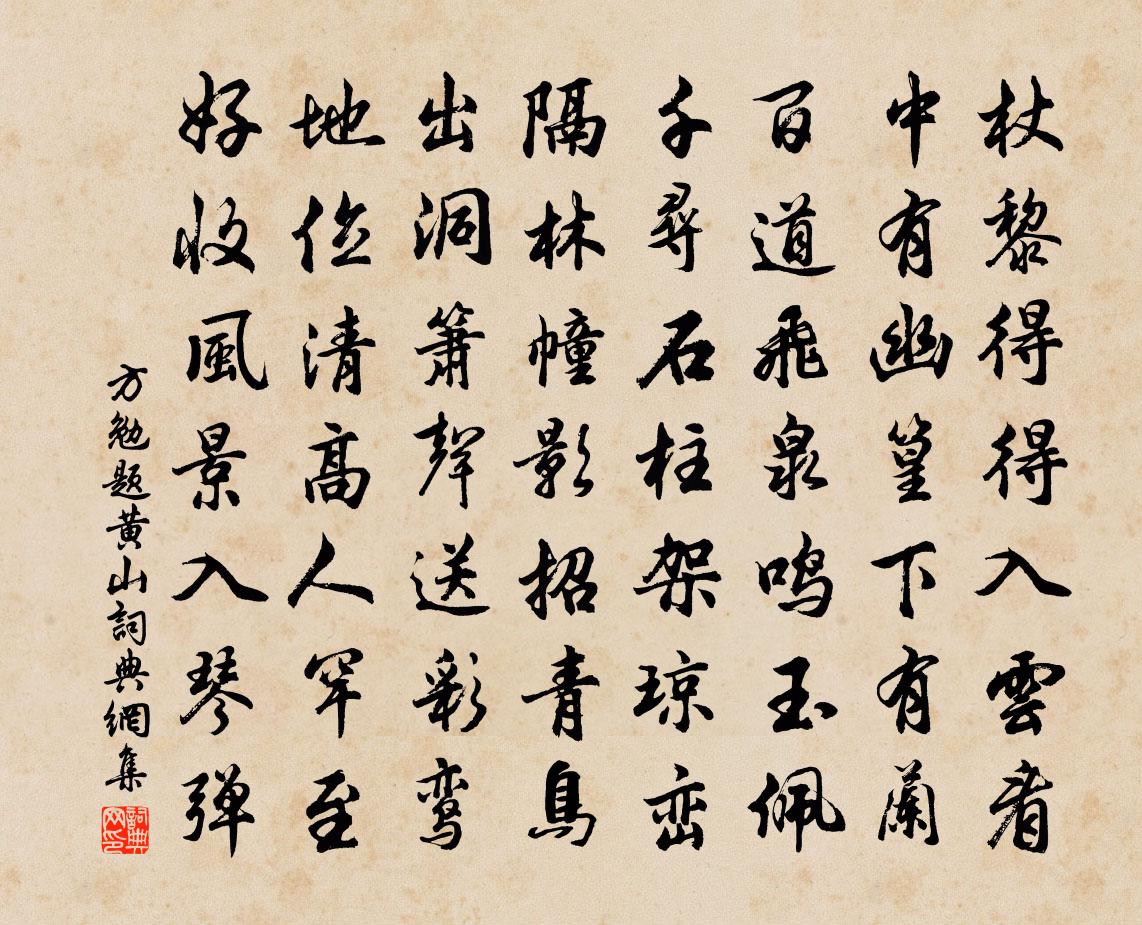 杖黎得得入雲看
中有幽篁下有蘭
百道飛泉鸣玉佩
千尋石柱架琼峦
隔林幢影招青鳥
出洞簫聲送彩鸾
地位清高人罕至
好收風景入琴弹
方勉题黄山詞典網集
詞典网印